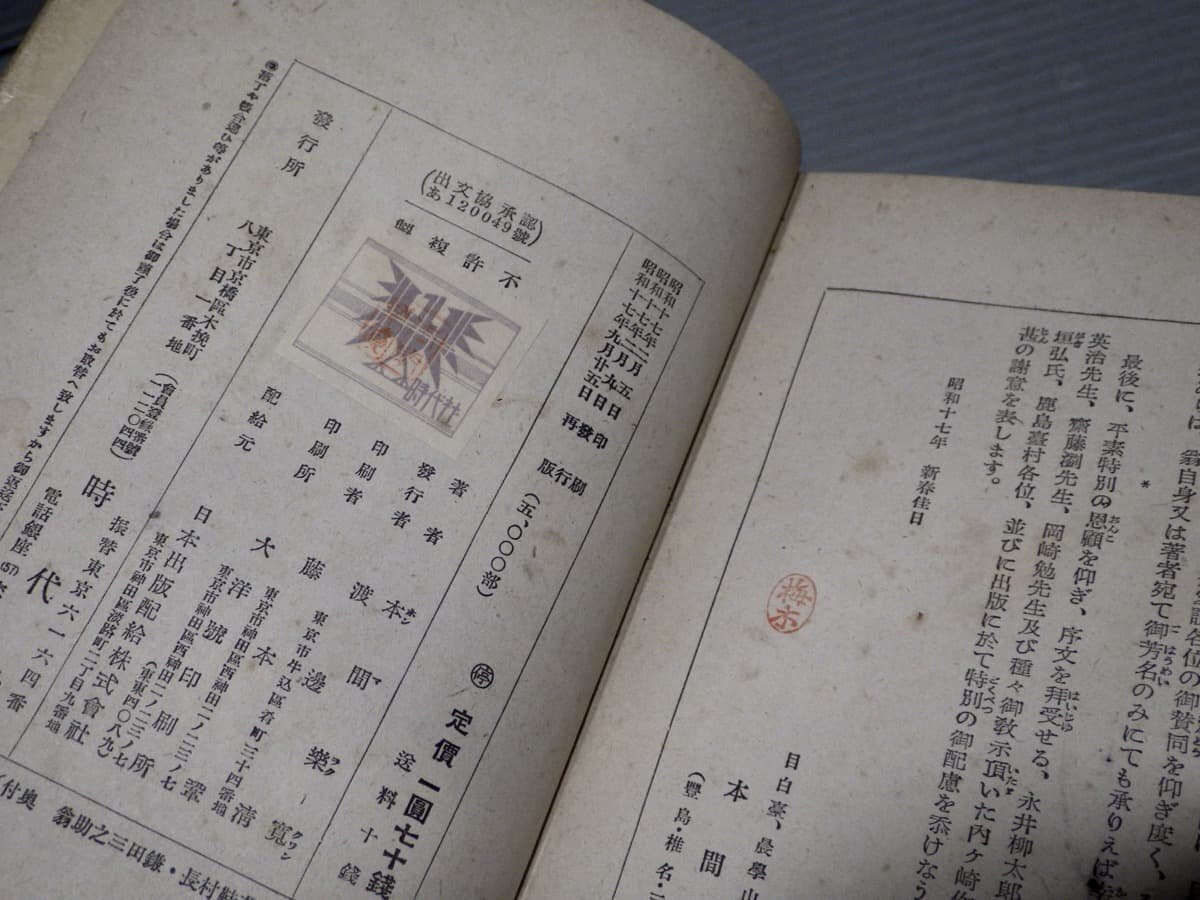 翁自身又は著者宛て御芳名のみにても承りえば
各位の御賛同を仰ぎ度く、
＊
最後に、平素特別の恩顧を仰ぎ、序文を拜受せる、永井柳太郎
英治先生、齋藤瀏先生、岡崎勉先生及び種々御教示頂いた内ケ崎作
垣弘氏、鹿島臺村各位、並びに出版に於て特別の御配慮を忝けなう
甚の謝意を表します。
昭和十七年 新春佳日
目白臺、晨學山
本間
(豐島・椎名・
昭和十七年二月五日印刷
昭和十七年二月九日發行
昭和十七年九月廿五日再版
(五、〇〇〇部)
停 定價一圓七十錢
送料十錢
出文協承認
あ120049號
不許複製
時代社
著者 本間樂寛
ホンマラククワン
發行者 渡邊清
東京市牛込區若町三十四番地
印刷者 藤本
東京市神田區西神田二ノ二三ノ七
印刷所 大洋號印刷所
東京市神田區西神田二ノ二三ノ七
(東東四〇八九)
配給元 日本出版配給株式會社
東京市神田區淡路町二丁目九番地
發行所
東京市京橋區木挽町
八丁目一番地
(會員登錄番號
一一二〇四四)
時代
振替東京六一六四番
電話銀座(57)
落丁や帳合違ひ等がありました場合は御讀了後に於てもお取替へ致しますから御返送
長村・鎌田三之助翁
奥付